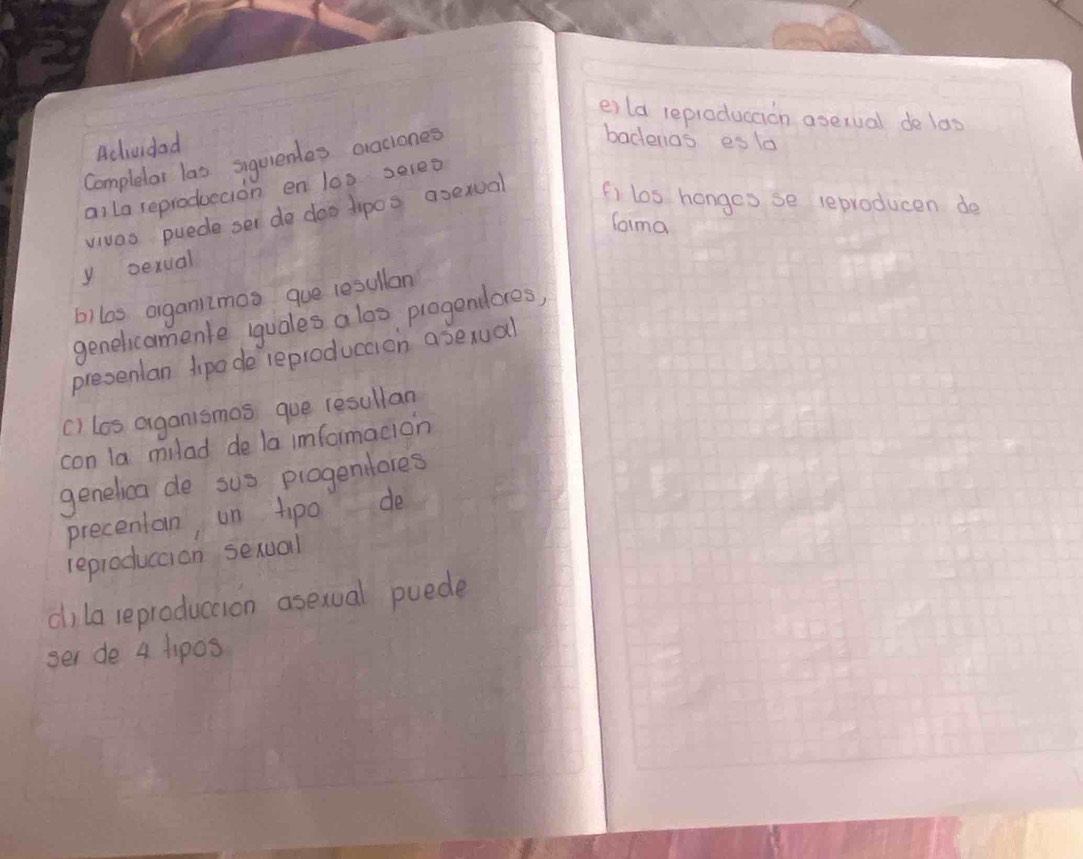 Actividad
Completar las siguientes oraciones
a) La reproducción en los seres
vivos puede ser de dos tipos asexual
y sexual
b) los organizmos que resultan
geneticamente iguales a los progenitores,
presentan tipo de reproduccion asexual
c) los organismos que resultan
con la mitad de la imformación
genetica de sus progenitores
precentan, un tipo de
reproduccion sexual
d) la reproduccion asexual puede
ser de 4 tipos
e) la reproduccion asexual de las
bacterias es la
f) los hongos se reproducen de
forma